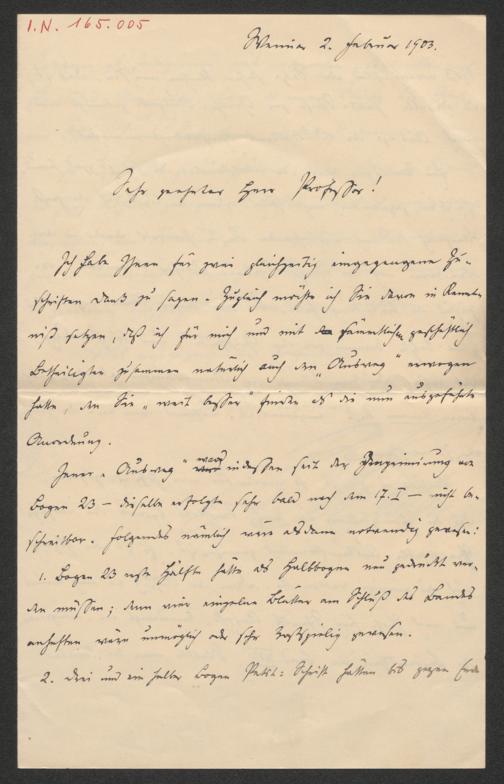 I.N. 165.005
Weimar 2. Februar 1903.
Sehr geehrter Herr Professor!
Ich habe Ihnen für zwei gleichzeitig eingegangene Zu-
schriften Dank zu sagen. Zugleich möchte ich Sie davon in Kennt-
niß setzen, daß ich für mich und mit sämmtlichen geschäftlich
Betheiligten zusammen natürlich auch den „Ausweg" erwogen
hatte, den Sie „weit besser" finden als die nun ausgeführte
Anordnung.
Jener „Ausweg" war indessen seit der Imprimirung von
Bogen 23 – dieselbe erfolgte sehr bald nach dem 17. I – nicht be-
schreitbar. Folgendes nämlich wäre alsdann nothwendig gewesen:
1. Bogen 23 erste Hälfte hätte als Halbbogen neu gedruckt wer-
den müssen; denn vier einzelne Blätter am Schluß des Bandes
anheften wäre unmöglich oder sehr kostspielig gewesen.
2. Drei und ein halber Bogen Petit-Schrift hätten bis gegen Ende